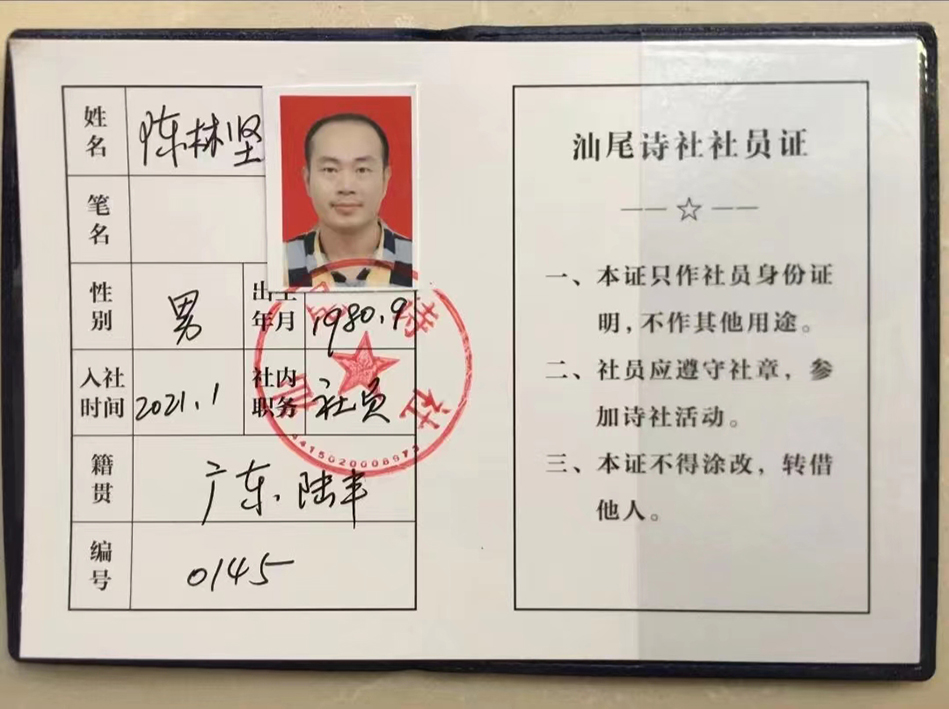 姓名 陈林坚
笔名
性别 男 出生年月 1980.9
入社时间 2021.1 社内职务 社员
籍贯 广东.陆丰
编号 0145
诗
社
4415020008973
汕尾诗社社员证
一、本证只作社员身份证
明,不作其他用途。
二、社员应遵守社章,参
加诗社活动。
三、本证不得涂改,转借
他人。